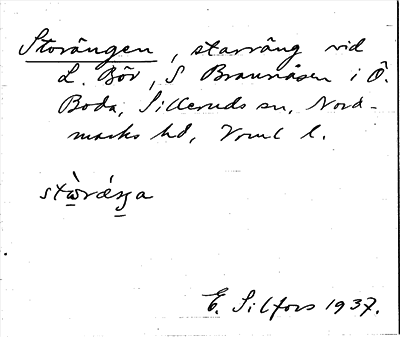 Storängen, starräng vid
L. Bör, S Braunåsen i Ö.
Boda, Silleruds sn, Nord-
marks hd, Vrml l.
E. Silfors 1937.